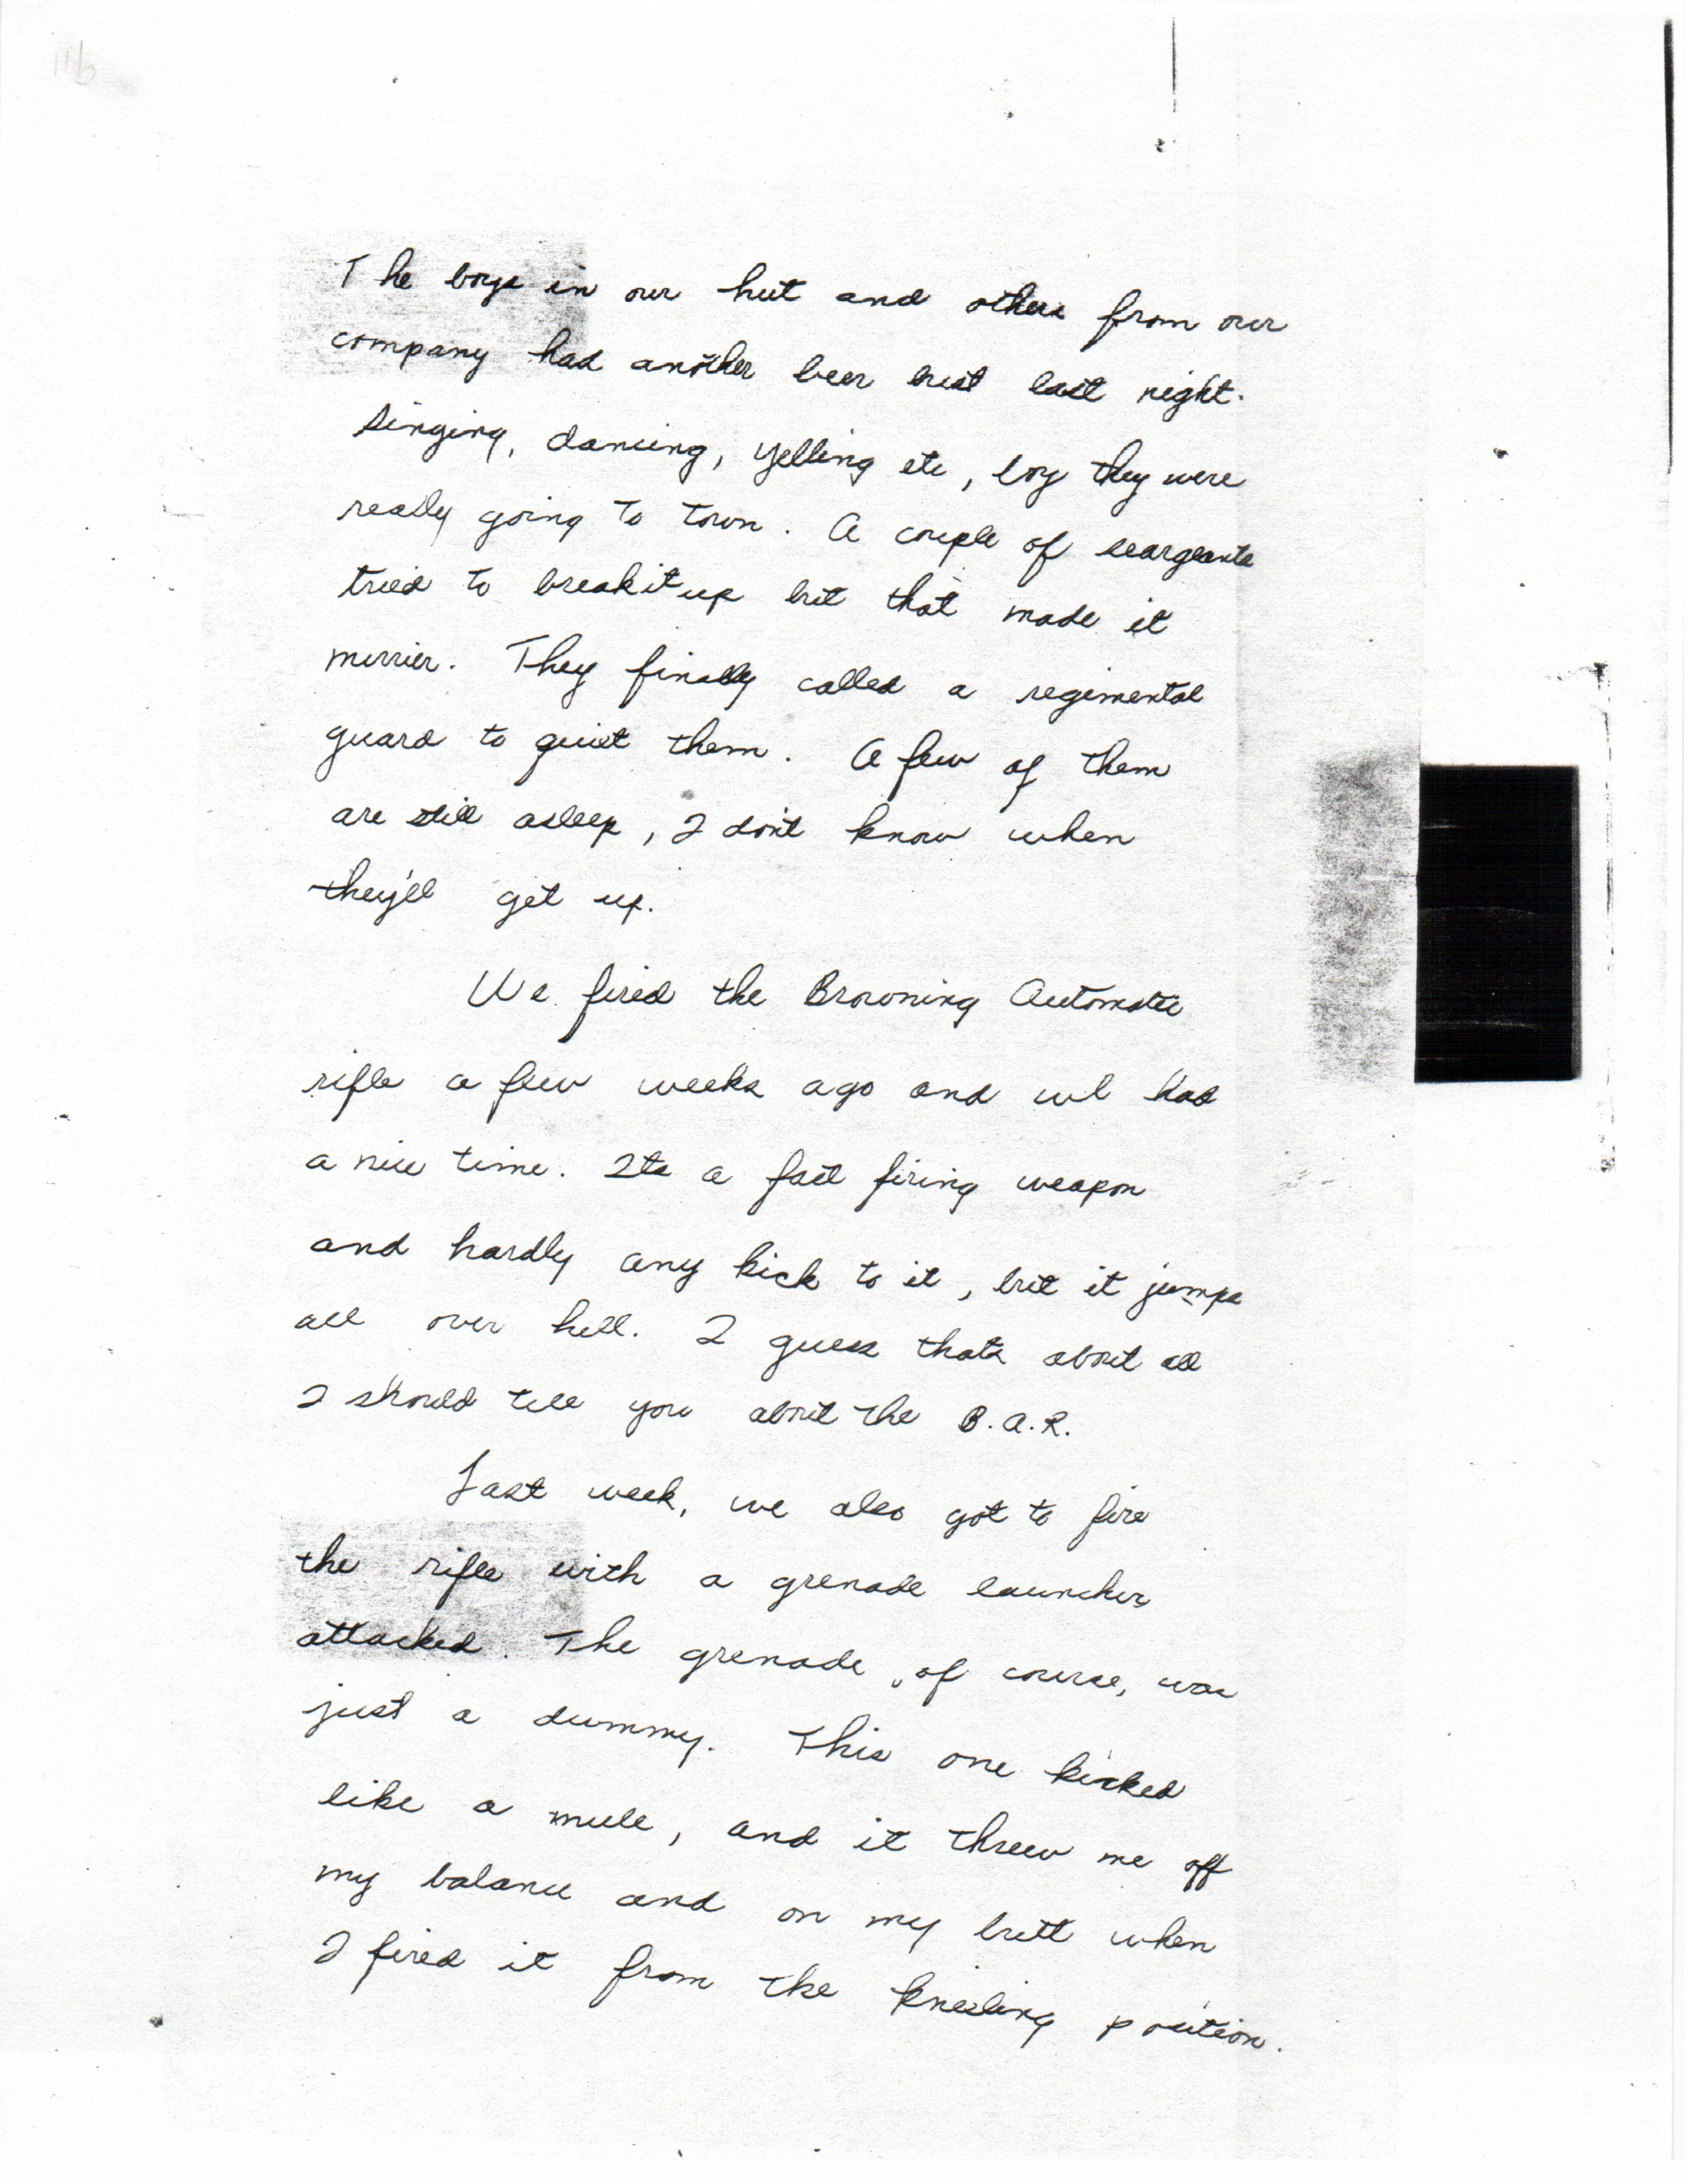 The boys in our hut and others from our
company had another beer bust last night.
Singing, dancing, yelling etc, boy they were
really going to town. A couple of seargeants
tried to break it up but that made it
merrier. They finally called a regimental
guard to quiet them. A few of them
are still asleep, I don't know when
they'll get up.
We fired the Browning Automatic
rifle a few weeks ago and we had
a nice time. Its a fast firing weapon
and hardly any kick to it, but it jumps
all over hell. I guess thats about all
I should tell you about the B.A.R.
Last week, we also got to fire
the rifle with a grenade launcher
attacked. The grenade, of course, was
just a dummy. This one kicked
like a mule, and it threw me off
my balance and on my butt when
I fired it from the kneeling position.